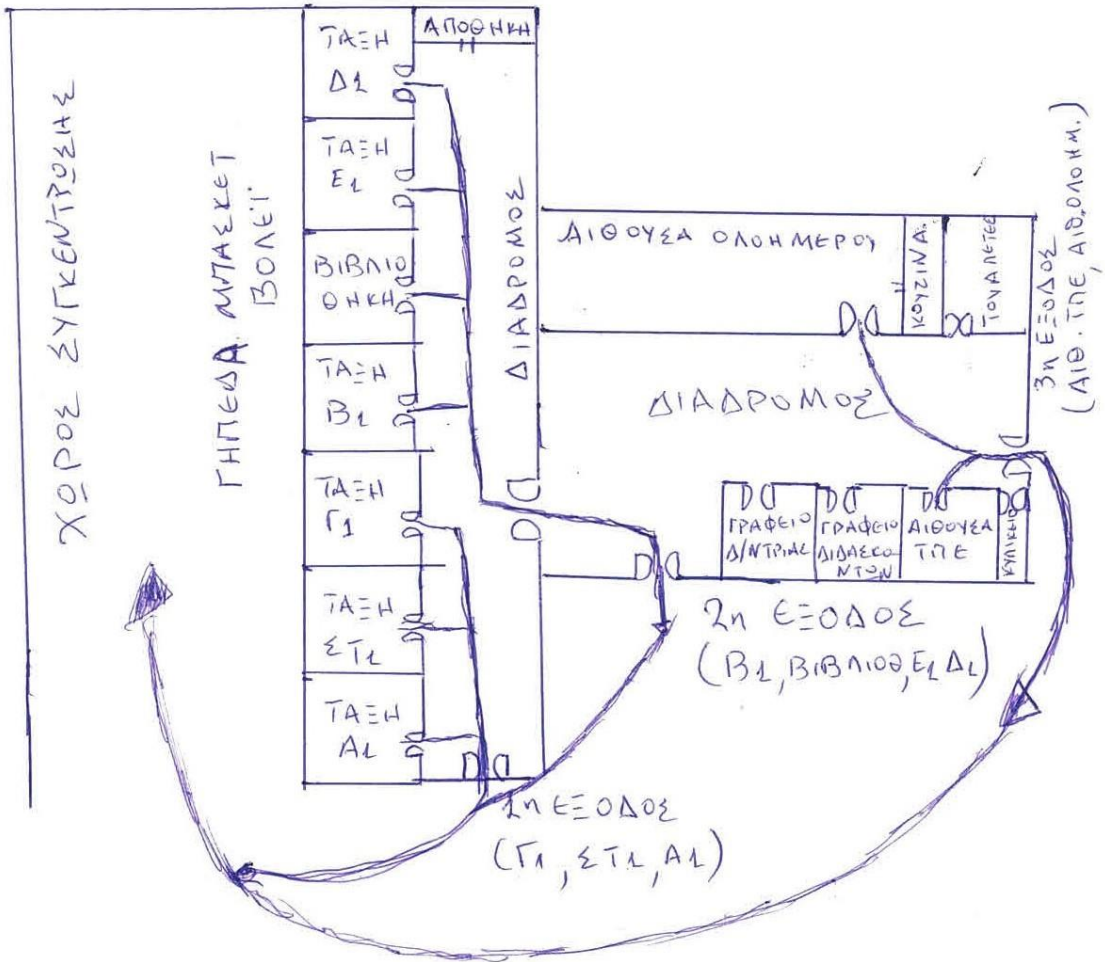 ΧΩΡΟΣ ΣΥΓΚΕΝΤΡΩΣΗΣ
ΓΗΠΕΔΑ ΜΠΑΣΚΕΤ
ΒΟΛΕΪ
ΤΑΞΗ
Δ1
ΑΠΟΘΗΚΗ
ΤΑΞΗ
Ε1
ΒΙΒΛΙΟ
ΘΗΚΗ
ΤΑΞΗ
Β1
ΤΑΞΗ
Γ1
ΤΑΞΗ
ΣΤ1
ΤΑΞΗ
Α1
ΔΙΑΔΡΟΜΟΣ
ΑΙΘΟΥΣΑ ΟΛΟΗΜΕΡΟΥ
ΚΟΥΖΙΝΑ
ΤΟΥΑΛΕΤΕΣ
3η ΕΞΟΔΟΣ
(ΑΙΘ. ΤΠΕ, ΑΙΘ.ΟΛΟΗΜ.)
ΔΙΑΔΡΟΜΟΣ
ΓΡΑΦΕΙΟ
Δ/ΝΤΡΙΑΣ
ΓΡΑΦΕΙΟ
ΔΙΔΑΣΚΟ
ΝΤΩΝ
ΑΙΘΟΥΣΑ
ΤΠΕ
ΚΥΛΙΚΕΙΟ
2η ΕΞΟΔΟΣ
(Β1, ΒΙΒΛΙΟΘ, Ε1 Δ1)
1η ΕΞΟΔΟΣ
(Γ1, ΣΤ1, Α1)